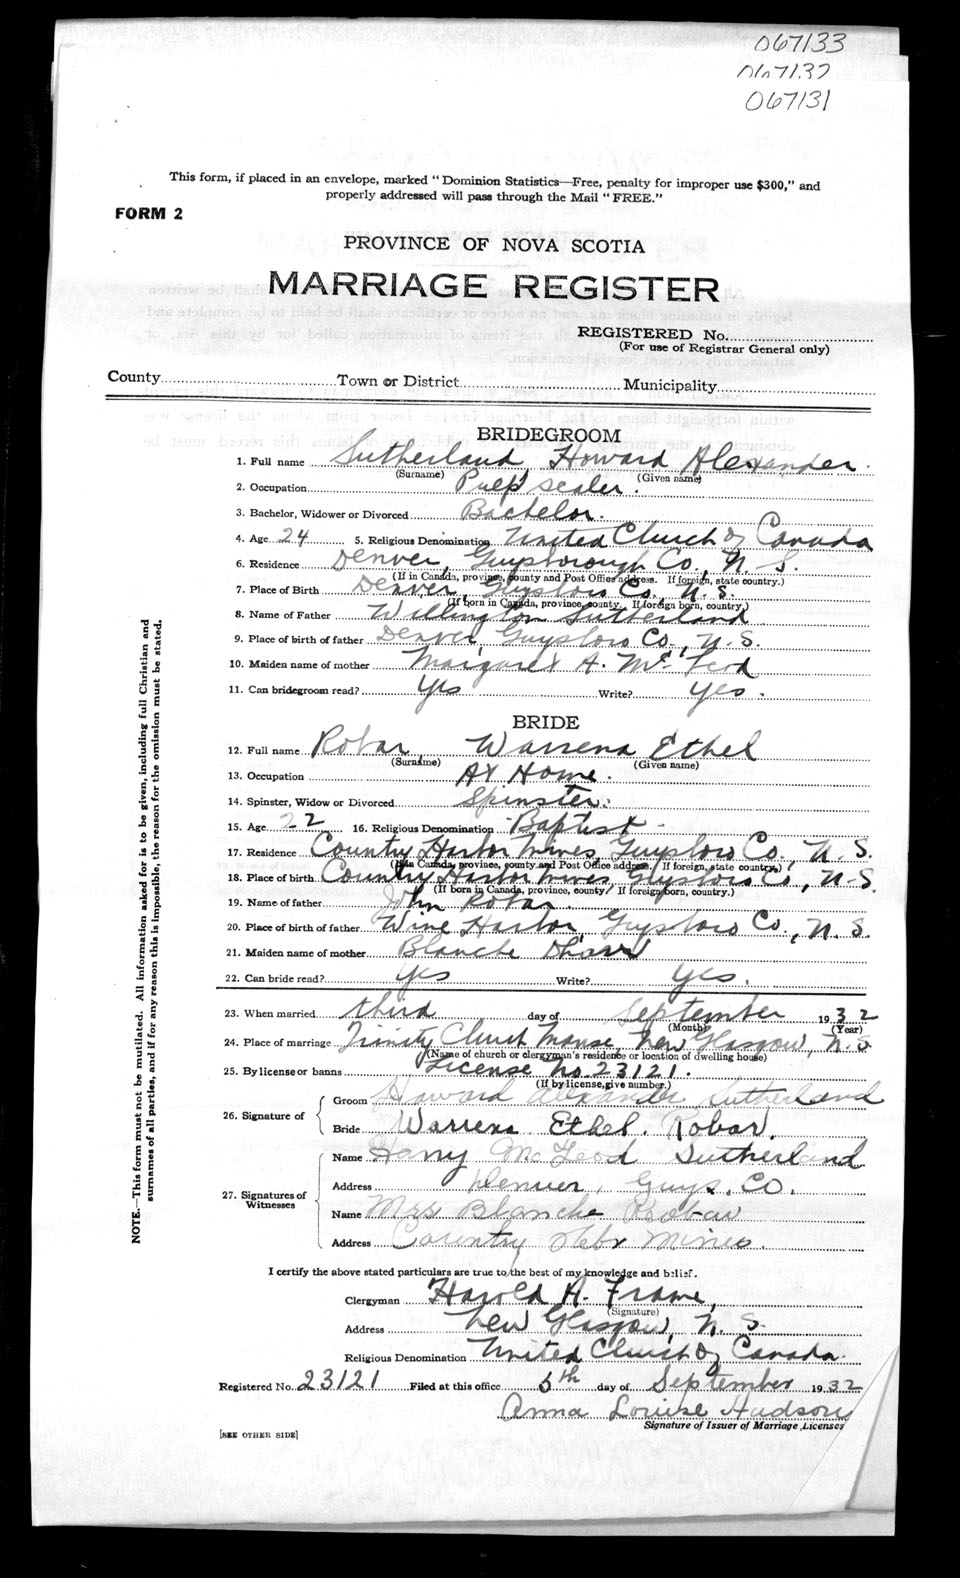 067133
067132
067131
This form, if placed in an envelope, marked "Dominion Statistics—Free, penalty for improper use $300," and
properly addressed will pass through the Mail "FREE."
FORM 2
PROVINCE OF NOVA SCOTIA
MARRIAGE REGISTER
REGISTERED No.
(For use of Registrar General only)
County Town or District Municipality
BRIDEGROOM
1. Full name Sutherland, Howard Alexander.
(Surname) (Given name)
2. Occupation Pulp sealer.
3. Bachelor, Widower or Divorced Bachelor.
4. Age 24 5. Religious Denomination United Church of Canada
6. Residence Denver, Guysborough Co., N. S.
(If in Canada, province, county and Post Office address. If foreign, state country.)
7. Place of Birth Denver, Guysboro Co. N. S.
(If born in Canada, province, county. If foreign born, country.)
8. Name of Father Willington Sutherland
9. Place of birth of father Denver, Guysboro Co., N. S.
10. Maiden name of mother Margaret A. McLeod
11. Can bridegroom read? Yes Write? Yes.
BRIDE
12. Full name Robar, Warrena Ethel
(Surname) (Given name)
13. Occupation At Home.
14. Spinster, Widow or Divorced Spinster.
15. Age 22 16. Religious Denomination Baptist.
17. Residence Country Harbor Mines, Guysboro Co., N. S.
(If in Canada, province, county and Post Office address. If foreign, state country.)
18. Place of birth Country Harbor Mines Guysboro Co., N. S.
(If born in Canada, province, county. If foreign born, country.)
19. Name of father John Robar.
20. Place of birth of father Wine Harbor, Guysboro Co., N. S.
21. Maiden name of mother Blanche
22. Can bride read? Yes Write? Yes.
23. When married third day of September 1932
(Month) (Year)
24. Place of marriage Trinity Church Manse, New Glasgow, N. S.
(Name of church or clergyman's residence or location of dwelling house)
25. By license or banns License No. 23121.
(If by license, give number.)
26. Signature of Groom Howard Alexander Sutherland
Bride Warrena Ethel. Robar.
27. Signatures of Witnesses Name Harry McLeod Sutherland
Address Denver, Guys. Co.
Name Mrs Blanche Robar
Address Country Hbr Mines.
I certify the above stated particulars are true to the best of my knowledge and belief.
Clergyman Harold A. Frame,
(Signature)
Address New Glasgow, N. S.
Religious Denomination United Church of Canada.
Registered No. 23121 Filed at this office 5th day of September 1932
Anna Louise Hudson
Signature of Issuer of Marriage Licenses
[SEE OTHER SIDE]
NOTE.—This form must not be mutilated. All information asked for is to be given, including full Christian and
surnames of all parties, and if for any reason this is impossible, the reason for the omission must be stated.